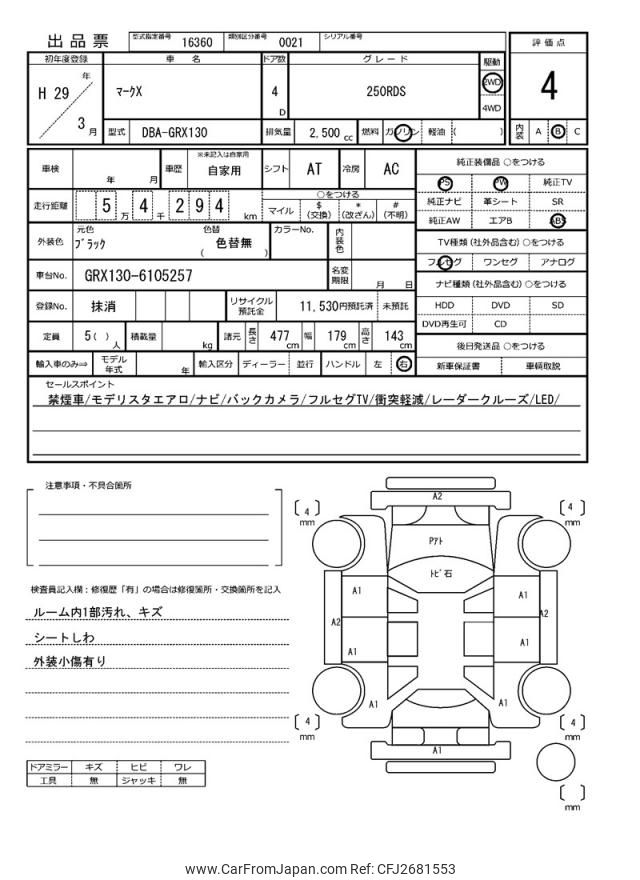 出品票
型式指定番号 16360 類別区分番号 0021 シリアル番号
評価点
4
内装 A B C
初年度登録 車名 ドア数 グレード 駆動
H 29 年 3 月
マークX
4 D
250RDS
2WD
4WD
型式 DBA-GRX130 排気量 2,500 cc 燃料 ガソリン 軽油 ( )
車検 年 月 車歴 ※未記入は自家用 自家用 シフト AT 冷房 AC
走行距離 5 万 4 千 2 9 4 km
○をつける
マイル $(交換) *(改ざん) #(不明)
外装色 元色 ブラック 色替 ( 色替無 ) カラーNo. 内装色
車台No. GRX130-6105257 名変期限 月 日
登録No. 抹消 リサイクル預託金 11,530円預託済 未預託
定員 5( ) 人 積載量 kg 諸元 長さ 477 cm 幅 179 cm 高さ 143 cm
輸入車のみ⇒ モデル年式 年 輸入区分 ディーラー 並行 ハンドル 左 右
純正装備品 ○をつける
PS PW 純正TV
純正ナビ 革シート SR
純正AW エアB ABS
TV種類 (社外品含む) ○をつける
フルセグ ワンセグ アナログ
ナビ種類 (社外品含む) ○をつける
HDD DVD SD
DVD再生可 CD
後日発送品 ○をつける
新車保証書 車輌取説
セールスポイント
禁煙車/モデリスタエアロ/ナビ/バックカメラ/フルセグTV/衝突軽減/レーダークルーズ/LED/
注意事項・不具合箇所
検査員記入欄：修復歴「有」の場合は修復箇所・交換箇所を記入
ルーム内1部汚れ、キズ
シートしわ
外装小傷有り
ドアミラー キズ ヒビ ワレ
工具 無 ジャッキ 無
A2
4 mm
4 mm
Pアト
トビ石
A1 A1
A2 A2
A1 A1
A1 A1
4 mm
4 mm
A1
mm
www.CarFromJapan.com Ref: CFJ2681553